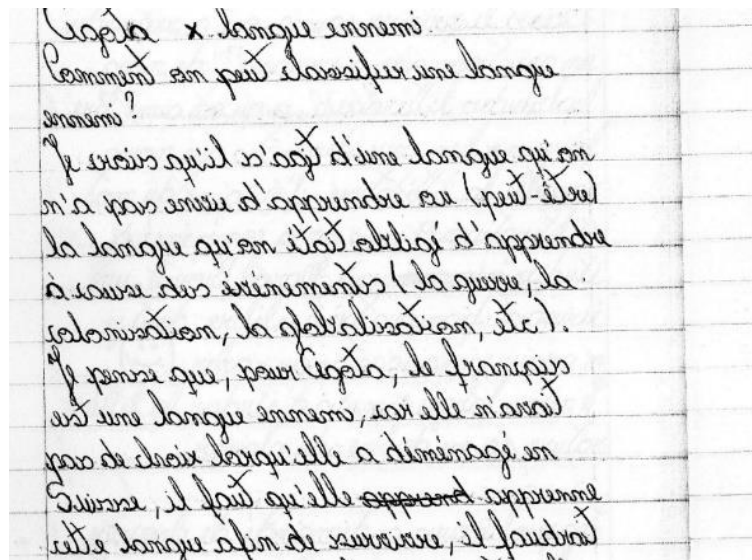 Agota x langue ennemi
Comment on peut classifier une langue
ennemi?
Je crois qu'il s'agit d'une langue qu'on
n'a pas envie d'apprendre ou (peut-être)
la langue qu'on était obligé d'apprendre
à cause des evenements (la guerre, la
colonisation, la globalisation, etc).
Je pense que, pour Agota, le français
est une langue ennemi, car elle n'avait
pas de choix lorqu'elle a déménagé en
Suisse, il faut qu'elle apprend apprenne
cette langue afin de survivre, il faudrait